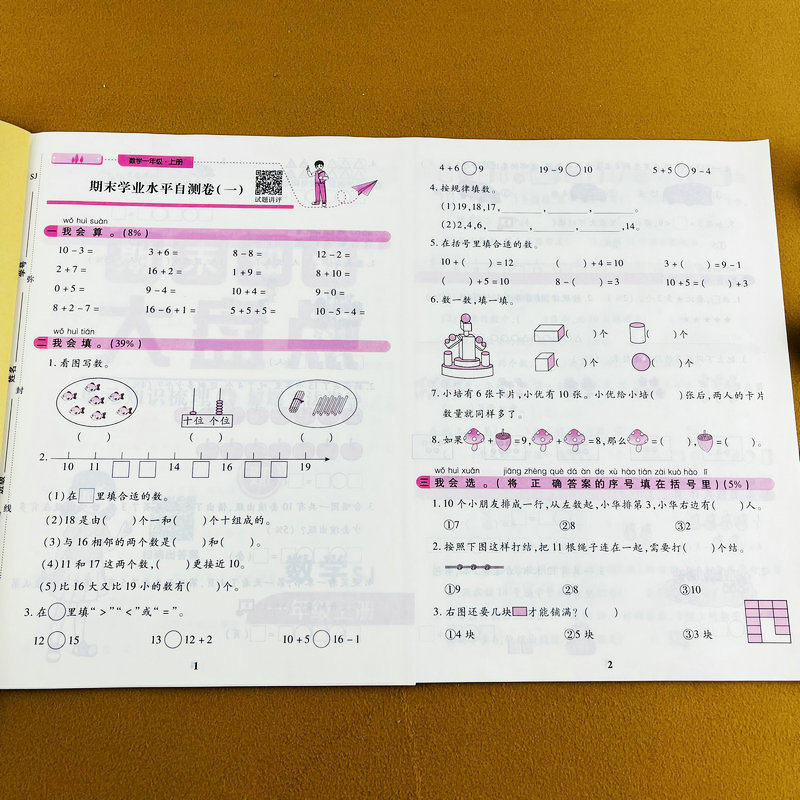 数学一年级·上册
期末学业水平自测卷(一)
试题讲评
wǒ huì suàn
一 我 会 算 。(8%)
10－3＝ 3＋6＝ 8－8＝ 12－2＝
2＋7＝ 16＋2＝ 1＋9＝ 8＋10＝
0＋5＝ 9－4＝ 10＋4＝ 9－0＝
8＋2－7＝ 16－6＋1＝ 5＋5＋5＝ 10－5－4＝
wǒ huì tián
二 我 会 填 。(39%)
1. 看图写数。
十位 个位
( ) ( ) ( )
2.
10 11 □ □ 14 15 16 □ □ 19
(1)在□里填合适的数。
(2)18是由( )个一和( )个十组成的。
(3)与16相邻的两个数是( )和( )。
(4)11和17这两个数,( )更接近10。
(5)比16大又比19小的数有( )个。
3. 在○里填“＞”“＜”或“＝”。
12○15 13○12＋2 10＋5○16－1
1
学号
姓名
弥
封
线
4＋6○9 19－9○10 5＋5○9－4
4. 按规律填数。
(1)19,18,17,______,______,______。
(2)2,4,6,______,______,______,14。
5. 在括号里填合适的数。
10＋( )＝12 ( )＋4＝10 3＋( )＝9－1
( )＋5＝10 8－( )＝3 10＋5＝( )＋3
6. 数一数,填一填。
( )个 ( )个
( )个 ( )个
7. 小培有6张卡片,小优有10张。小优给小培( )张后,两人的卡片
数量就同样多了。
8. 如果 ＋ ＝9, ＋ ＝8,那么 ＝( ), ＝( )。
wǒ huì xuǎn jiāng zhèng què dá àn de xù hào tián zài kuò hào lǐ
三 我 会 选 。( 将 正 确 答 案 的 序 号 填 在 括 号 里 )(5%)
1. 10个小朋友排成一行,从左数起,小华排第3,小华右边有( )人。
①7 ②8 ③2
2. 按照下图这样打结,把11根绳子连在一起,需要打( )个结。
①9 ②8 ③10
3. 右图还要几块 才能铺满?( )
①4块 ②5块 ③3块
2